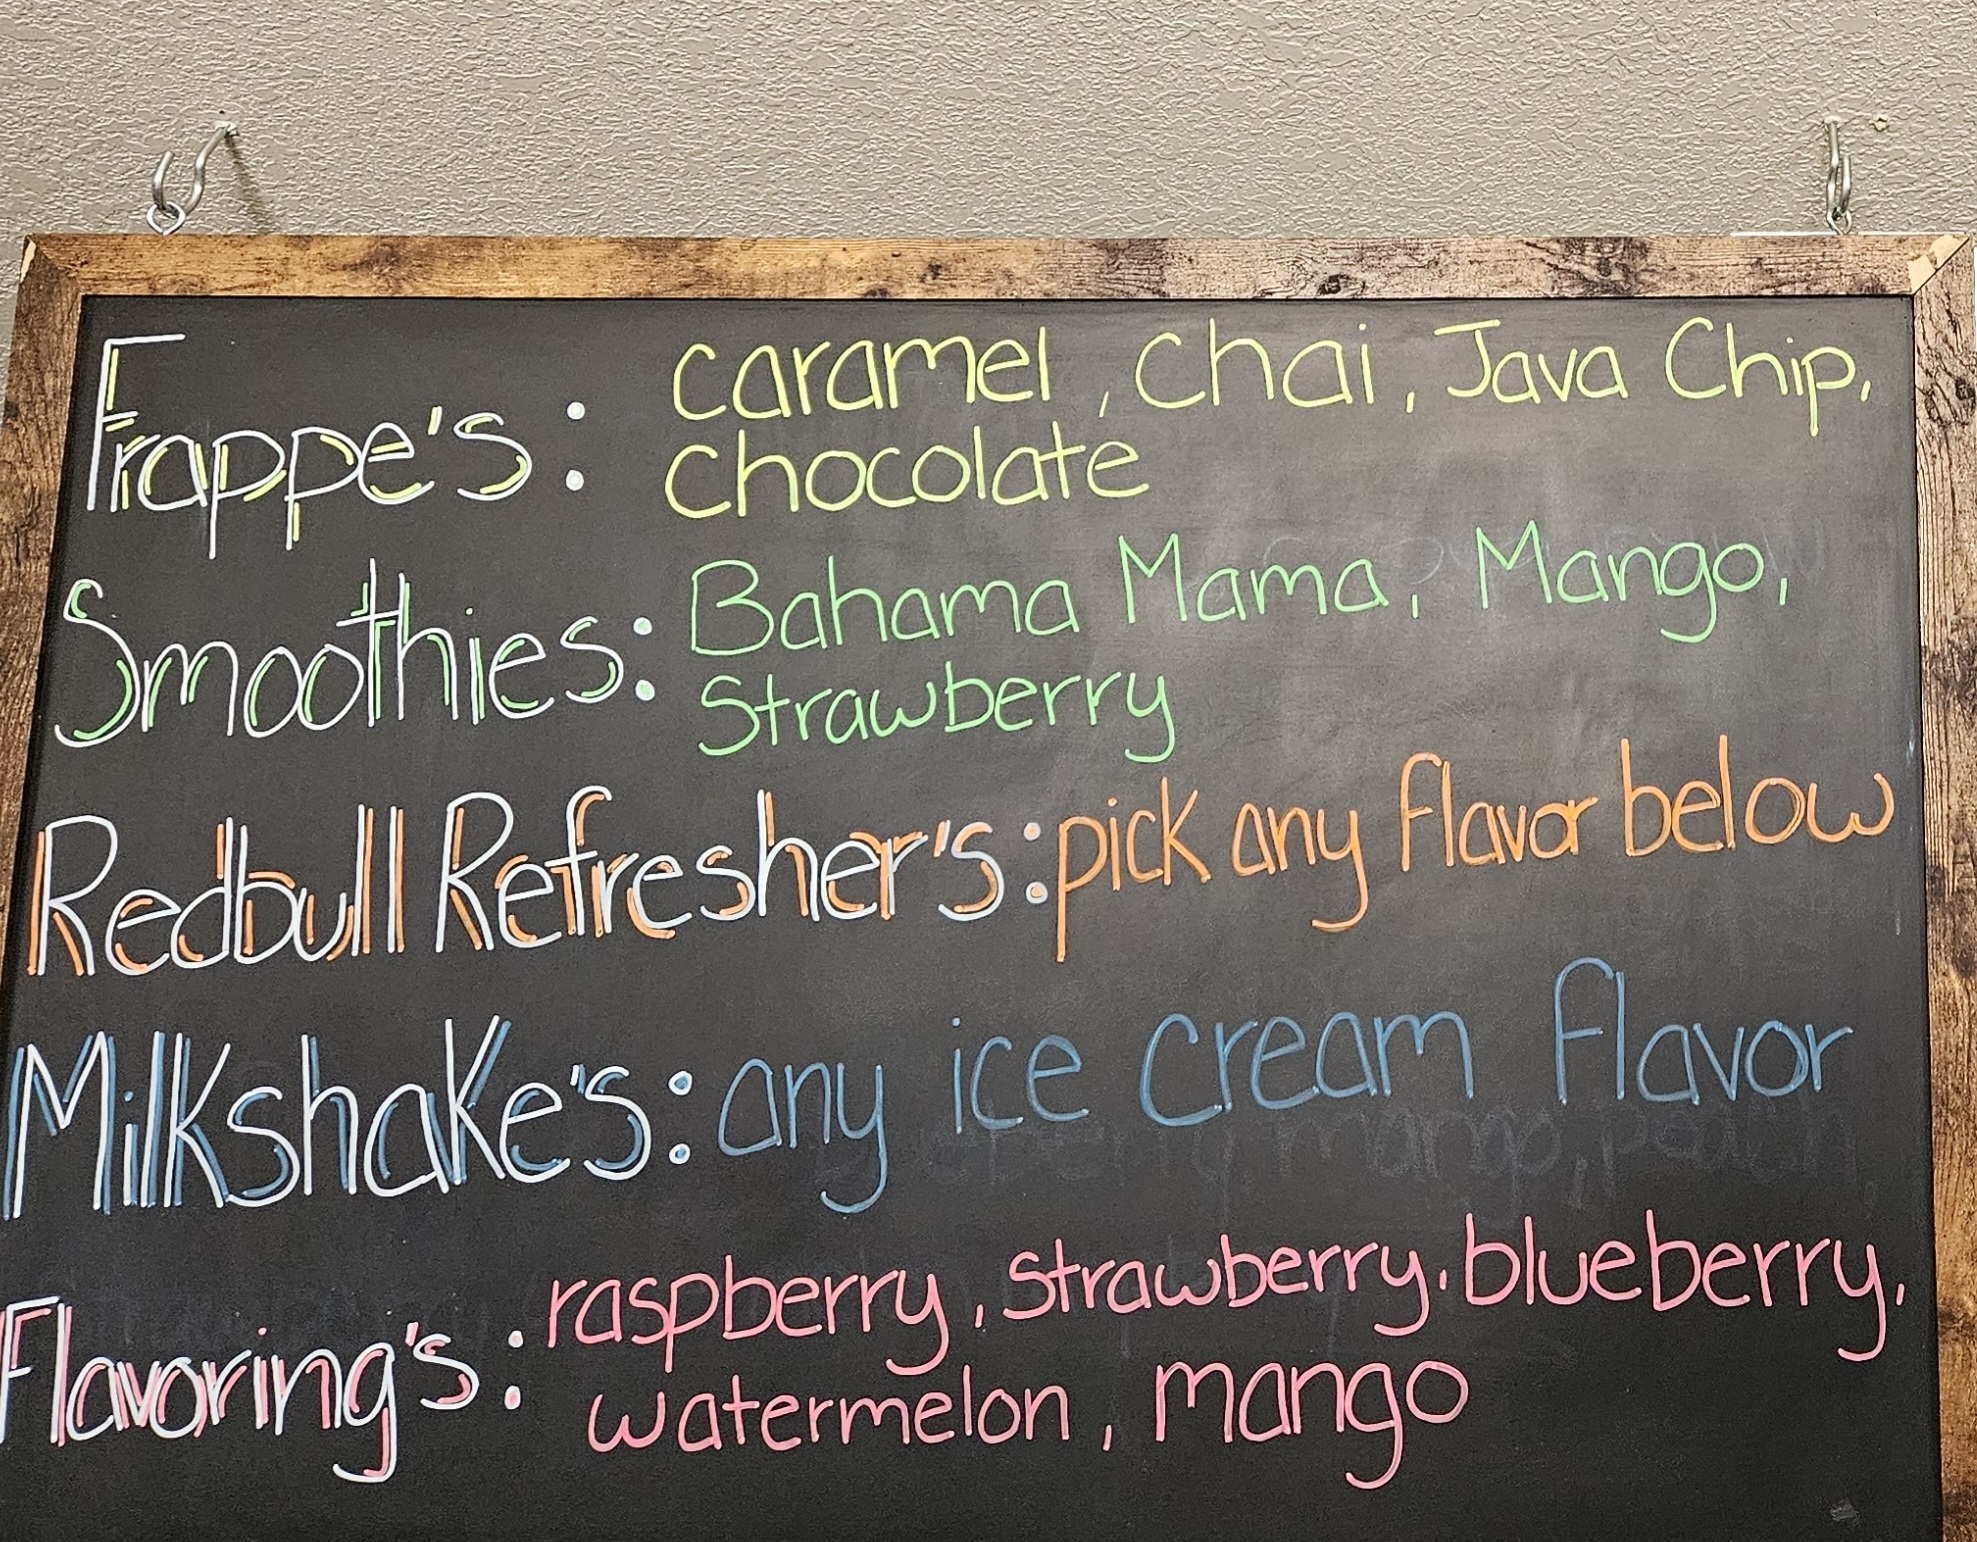 Frappe's: Caramel, Chai, Java Chip,
Chocolate
Smoothies: Bahama Mama, Mango,
Strawberry
Redbull Refresher's: pick any flavor below
Milkshake's: any ice cream flavor
Flavoring's: raspberry, strawberry, blueberry,
watermelon, mango